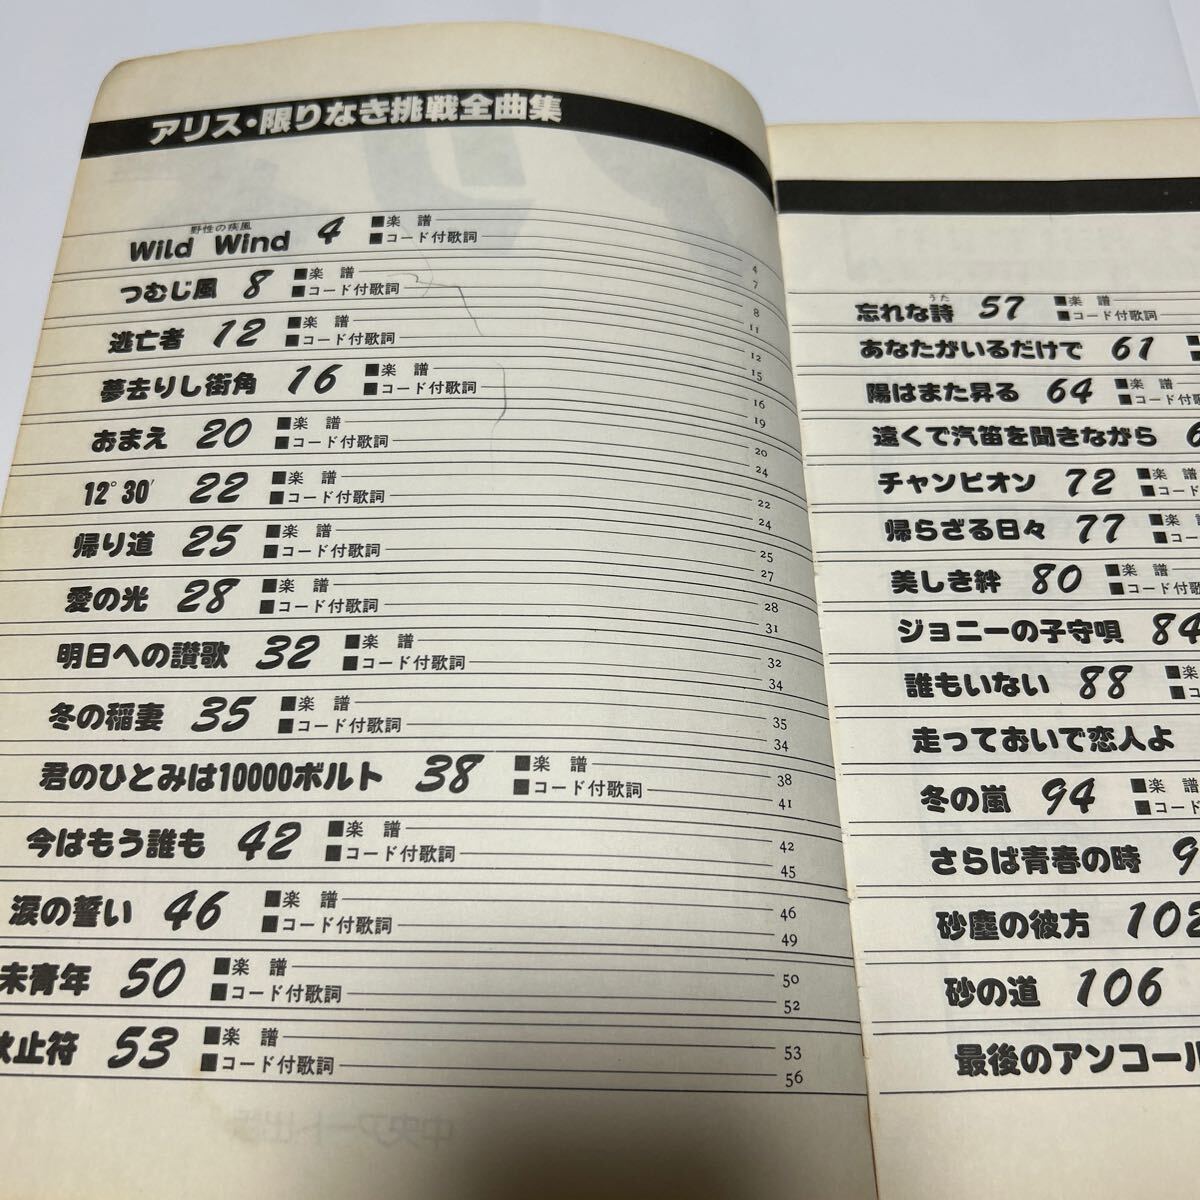 アリス・限りなき挑戦全曲集
野性の疾風
Wild Wind 4 ■楽譜 4
■コード付歌詞 7
つむじ風 8 ■楽譜 8
■コード付歌詞 11
逃亡者 12 ■楽譜 12
■コード付歌詞 15
夢去りし街角 16 ■楽譜 16
■コード付歌詞 19
おまえ 20 ■楽譜 20
■コード付歌詞 24
12°30′ 22 ■楽譜 22
■コード付歌詞 24
帰り道 25 ■楽譜 25
■コード付歌詞 27
愛の光 28 ■楽譜 28
■コード付歌詞 31
明日への讃歌 32 ■楽譜 32
■コード付歌詞 34
冬の稲妻 35 ■楽譜 35
■コード付歌詞 34
君のひとみは10000ボルト 38 ■楽譜 38
■コード付歌詞 41
今はもう誰も 42 ■楽譜 42
■コード付歌詞 45
涙の誓い 46 ■楽譜 46
■コード付歌詞 49
未青年 50 ■楽譜 50
■コード付歌詞 52
止符 53 ■楽譜 53
■コード付歌詞 56
うた
忘れな詩 57 ■楽譜
■コード付歌詞
あなたがいるだけで 61 ■
■
陽はまた昇る 64 ■楽譜
■コード付歌
遠くで汽笛を聞きながら 6
チャンピオン 72 ■楽譜
■コード
帰らざる日々 77 ■楽
■コー
美しき絆 80 ■楽譜
■コード付歌
ジョニーの子守唄 84
誰もいない 88 ■楽
■コ
走っておいで恋人よ
冬の嵐 94 ■楽譜
■コード
さらば青春の時 9
砂塵の彼方 102
砂の道 106
最後のアンコール